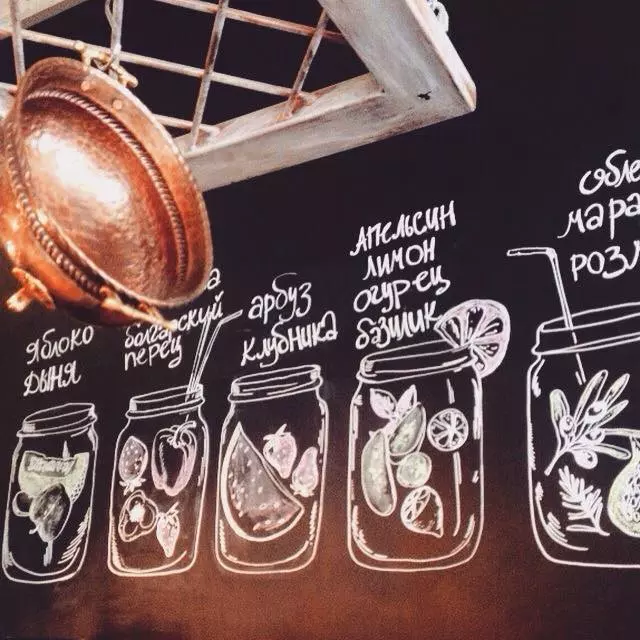 яблоко
дыня
болгарский
перец
арбуз
клубника
апельсин
лимон
огурец
базилик
обле
мара
розм